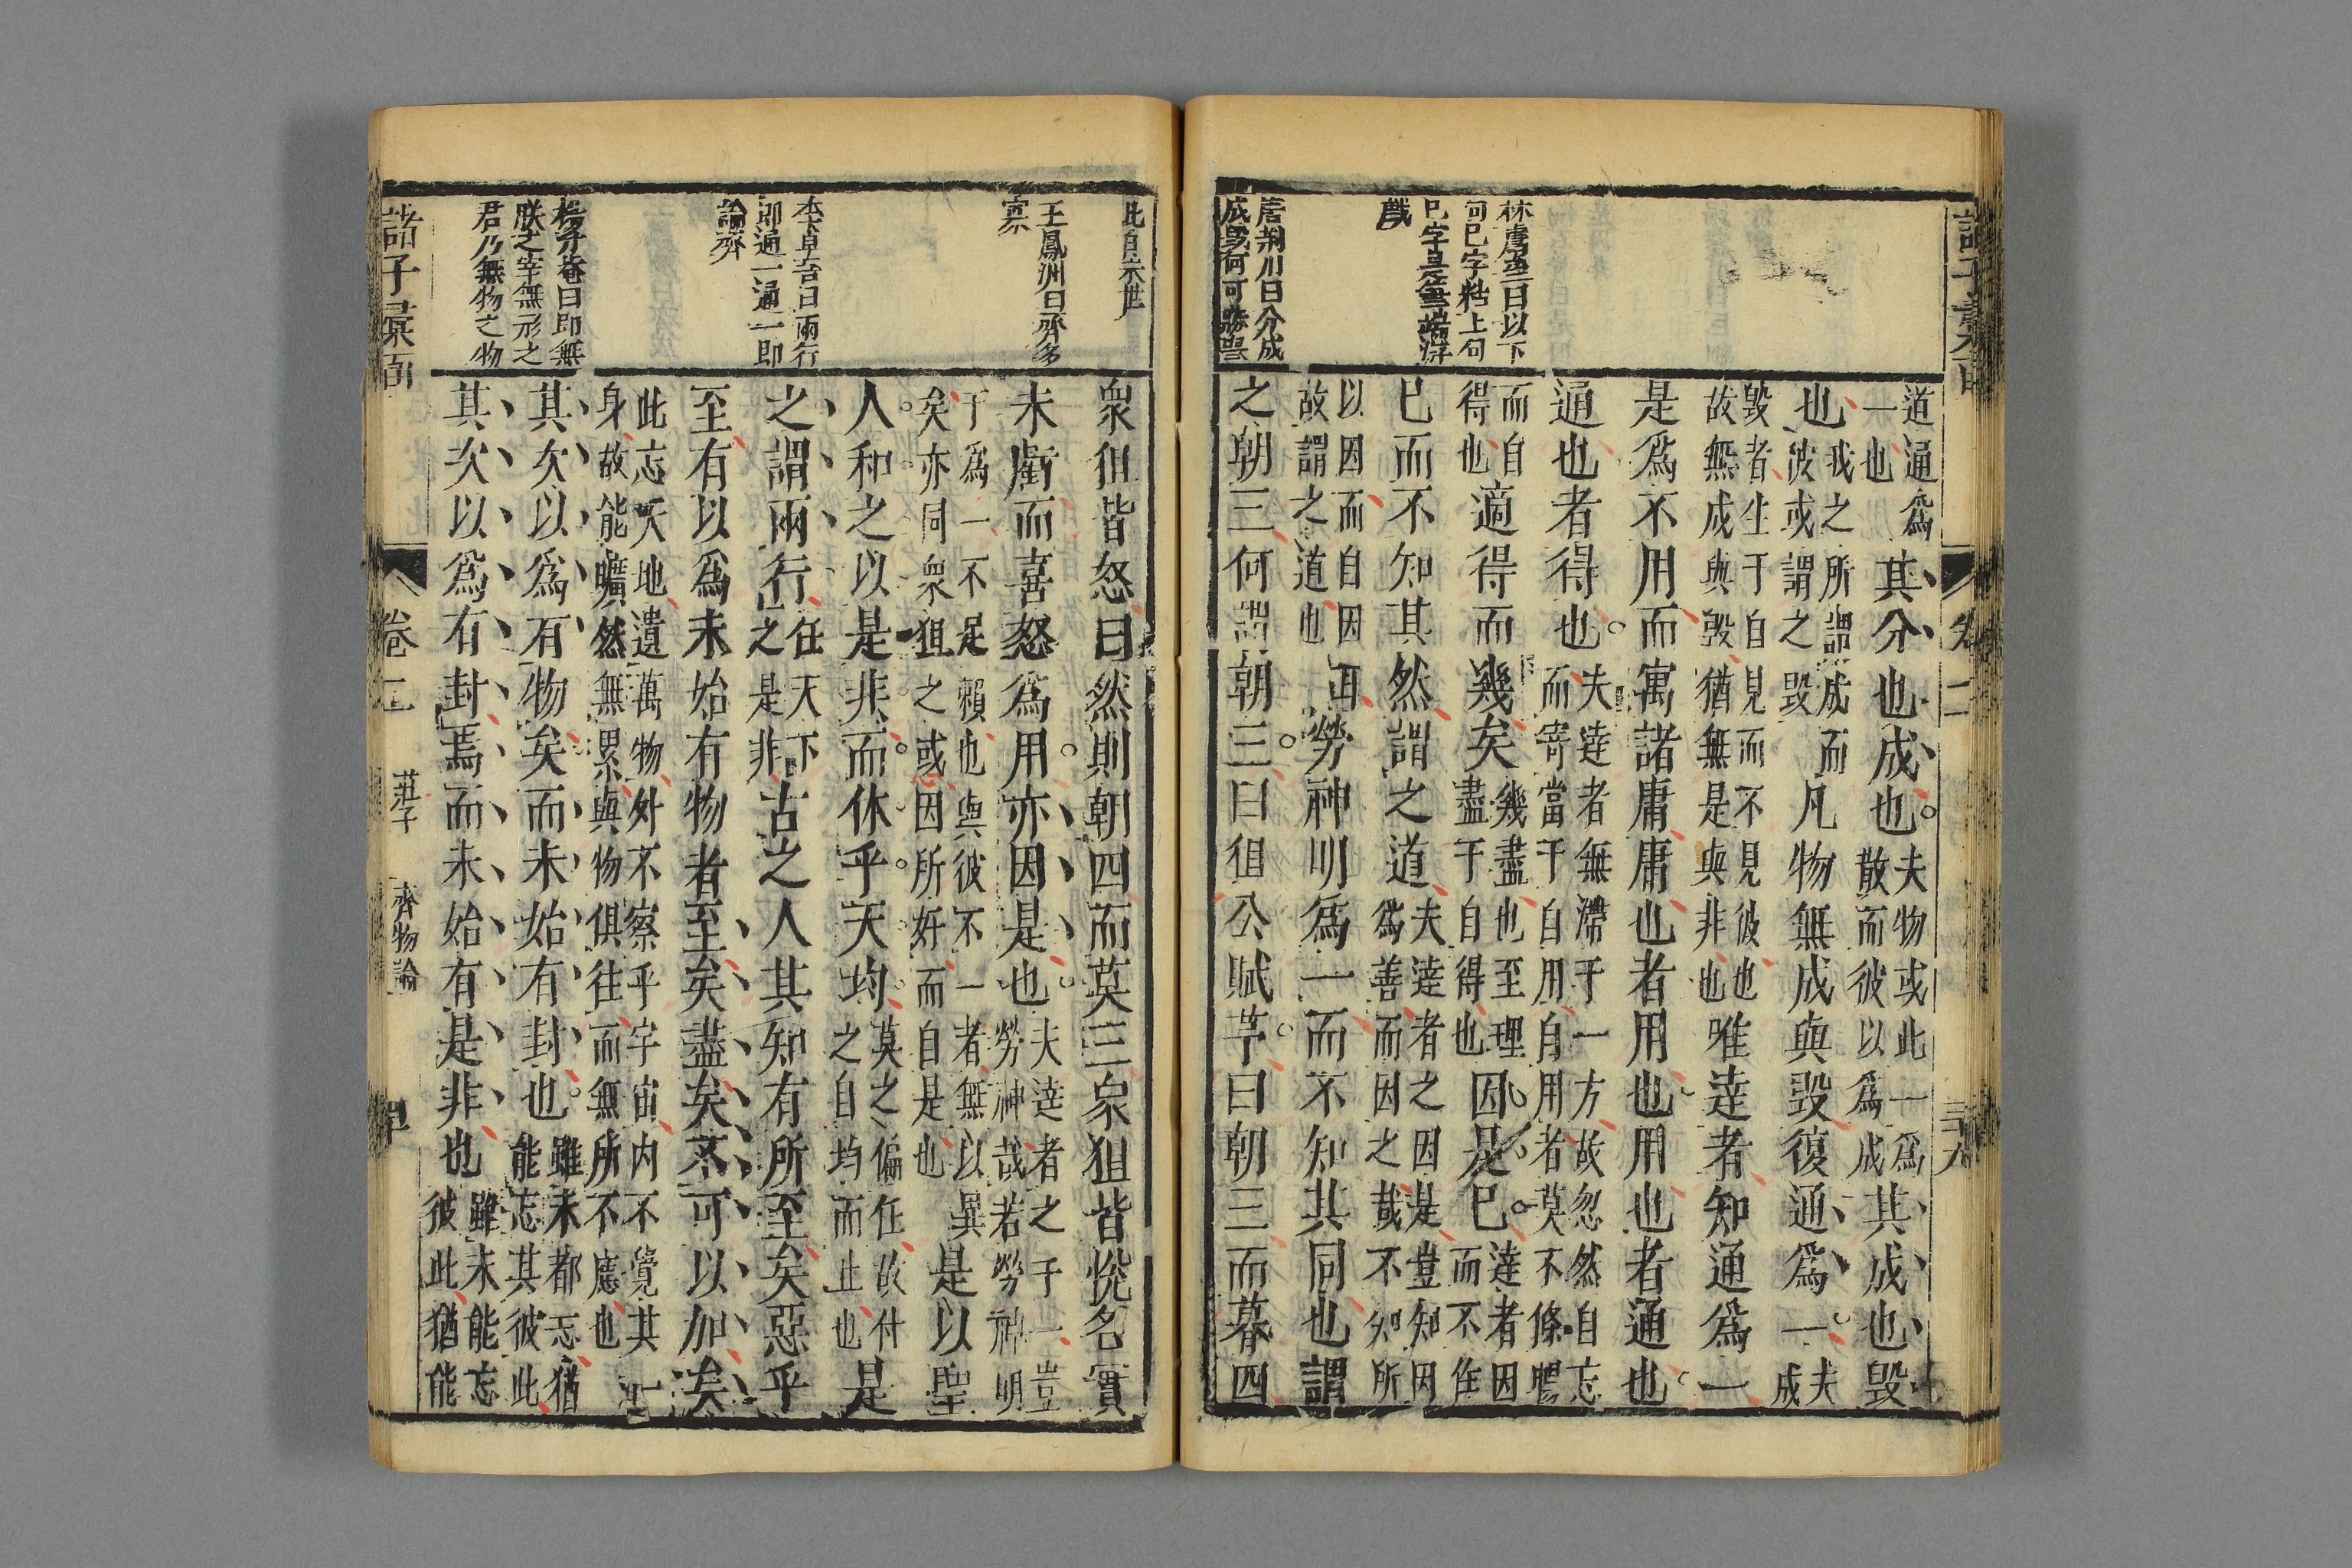 林鬳齋曰以下
句已字粘上句
已字是無端
戲
唐荊川曰分成
成毀何可勝
道通爲
一也
其分也成也
夫物或此一爲
散而彼以爲成
其成也毀
也
我之所謂成而
彼或謂之毀
凡物無成與毀復通爲一
夫
成
毀者生于自見而不見彼也
故無成與毀猶無是與非也
唯達者知通爲一
是爲不用而寓諸庸庸也者用也用也者通也
通也者得也
夫達者無滯于一方故忽然自忘
而寄當于自用自用者莫不條暢
而自
得也
適得而幾矣
幾盡也至理
盡于自得也
因是已
達者因
而不作
已而不知其然謂之道
夫達者之因是豈知因
爲善而因之哉不知所
以因而自因耳
故謂之道也
勞神明爲一而不知其同也謂
之朝三何謂朝三曰狙公賦芧曰朝三而暮四
卷二
三十九
王鳳洲曰齊多
寡
李卓吾曰兩行
即通一通一即
論齊
楊升菴曰即無
朕之宰無形之
君乃無物之物
衆狙皆怒曰然則朝四而莫三衆狙皆悅名實
未虧而喜怒爲用亦因是也
夫達者之于一豈
勞神哉若勞神明
于爲一不足賴也與彼不一者無以異
矣亦同衆狙之或因所好而自是也
是以聖
人和之以是非而休乎天均
莫之偏任故付
之自均而止也
是
之謂兩行
任天下
之是非
古之人其知有所至矣惡乎
至有以爲未始有物者至矣盡矣不可以加矣
此忘天地遺萬物外不察乎宇宙内不覺其一
身故能曠然無累與物俱往而無所不應也
其次以爲有物矣而未始有封也
雖未都忘猶
能忘其彼此
其次以爲有封焉而未始有是非也
雖未能忘
彼此猶能忘
諸子彙函
卷二
莊子
齊物論